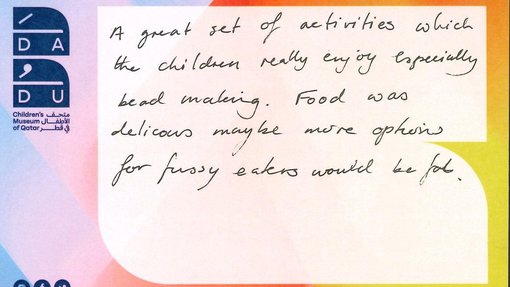 DA
DU
Children's متحف
Museum الأطفال
of Qatar في قطر
A great set of activities which
the children really enjoy especially
bead making. Food was
delicous maybe more options
for fussy eaters would be fab.